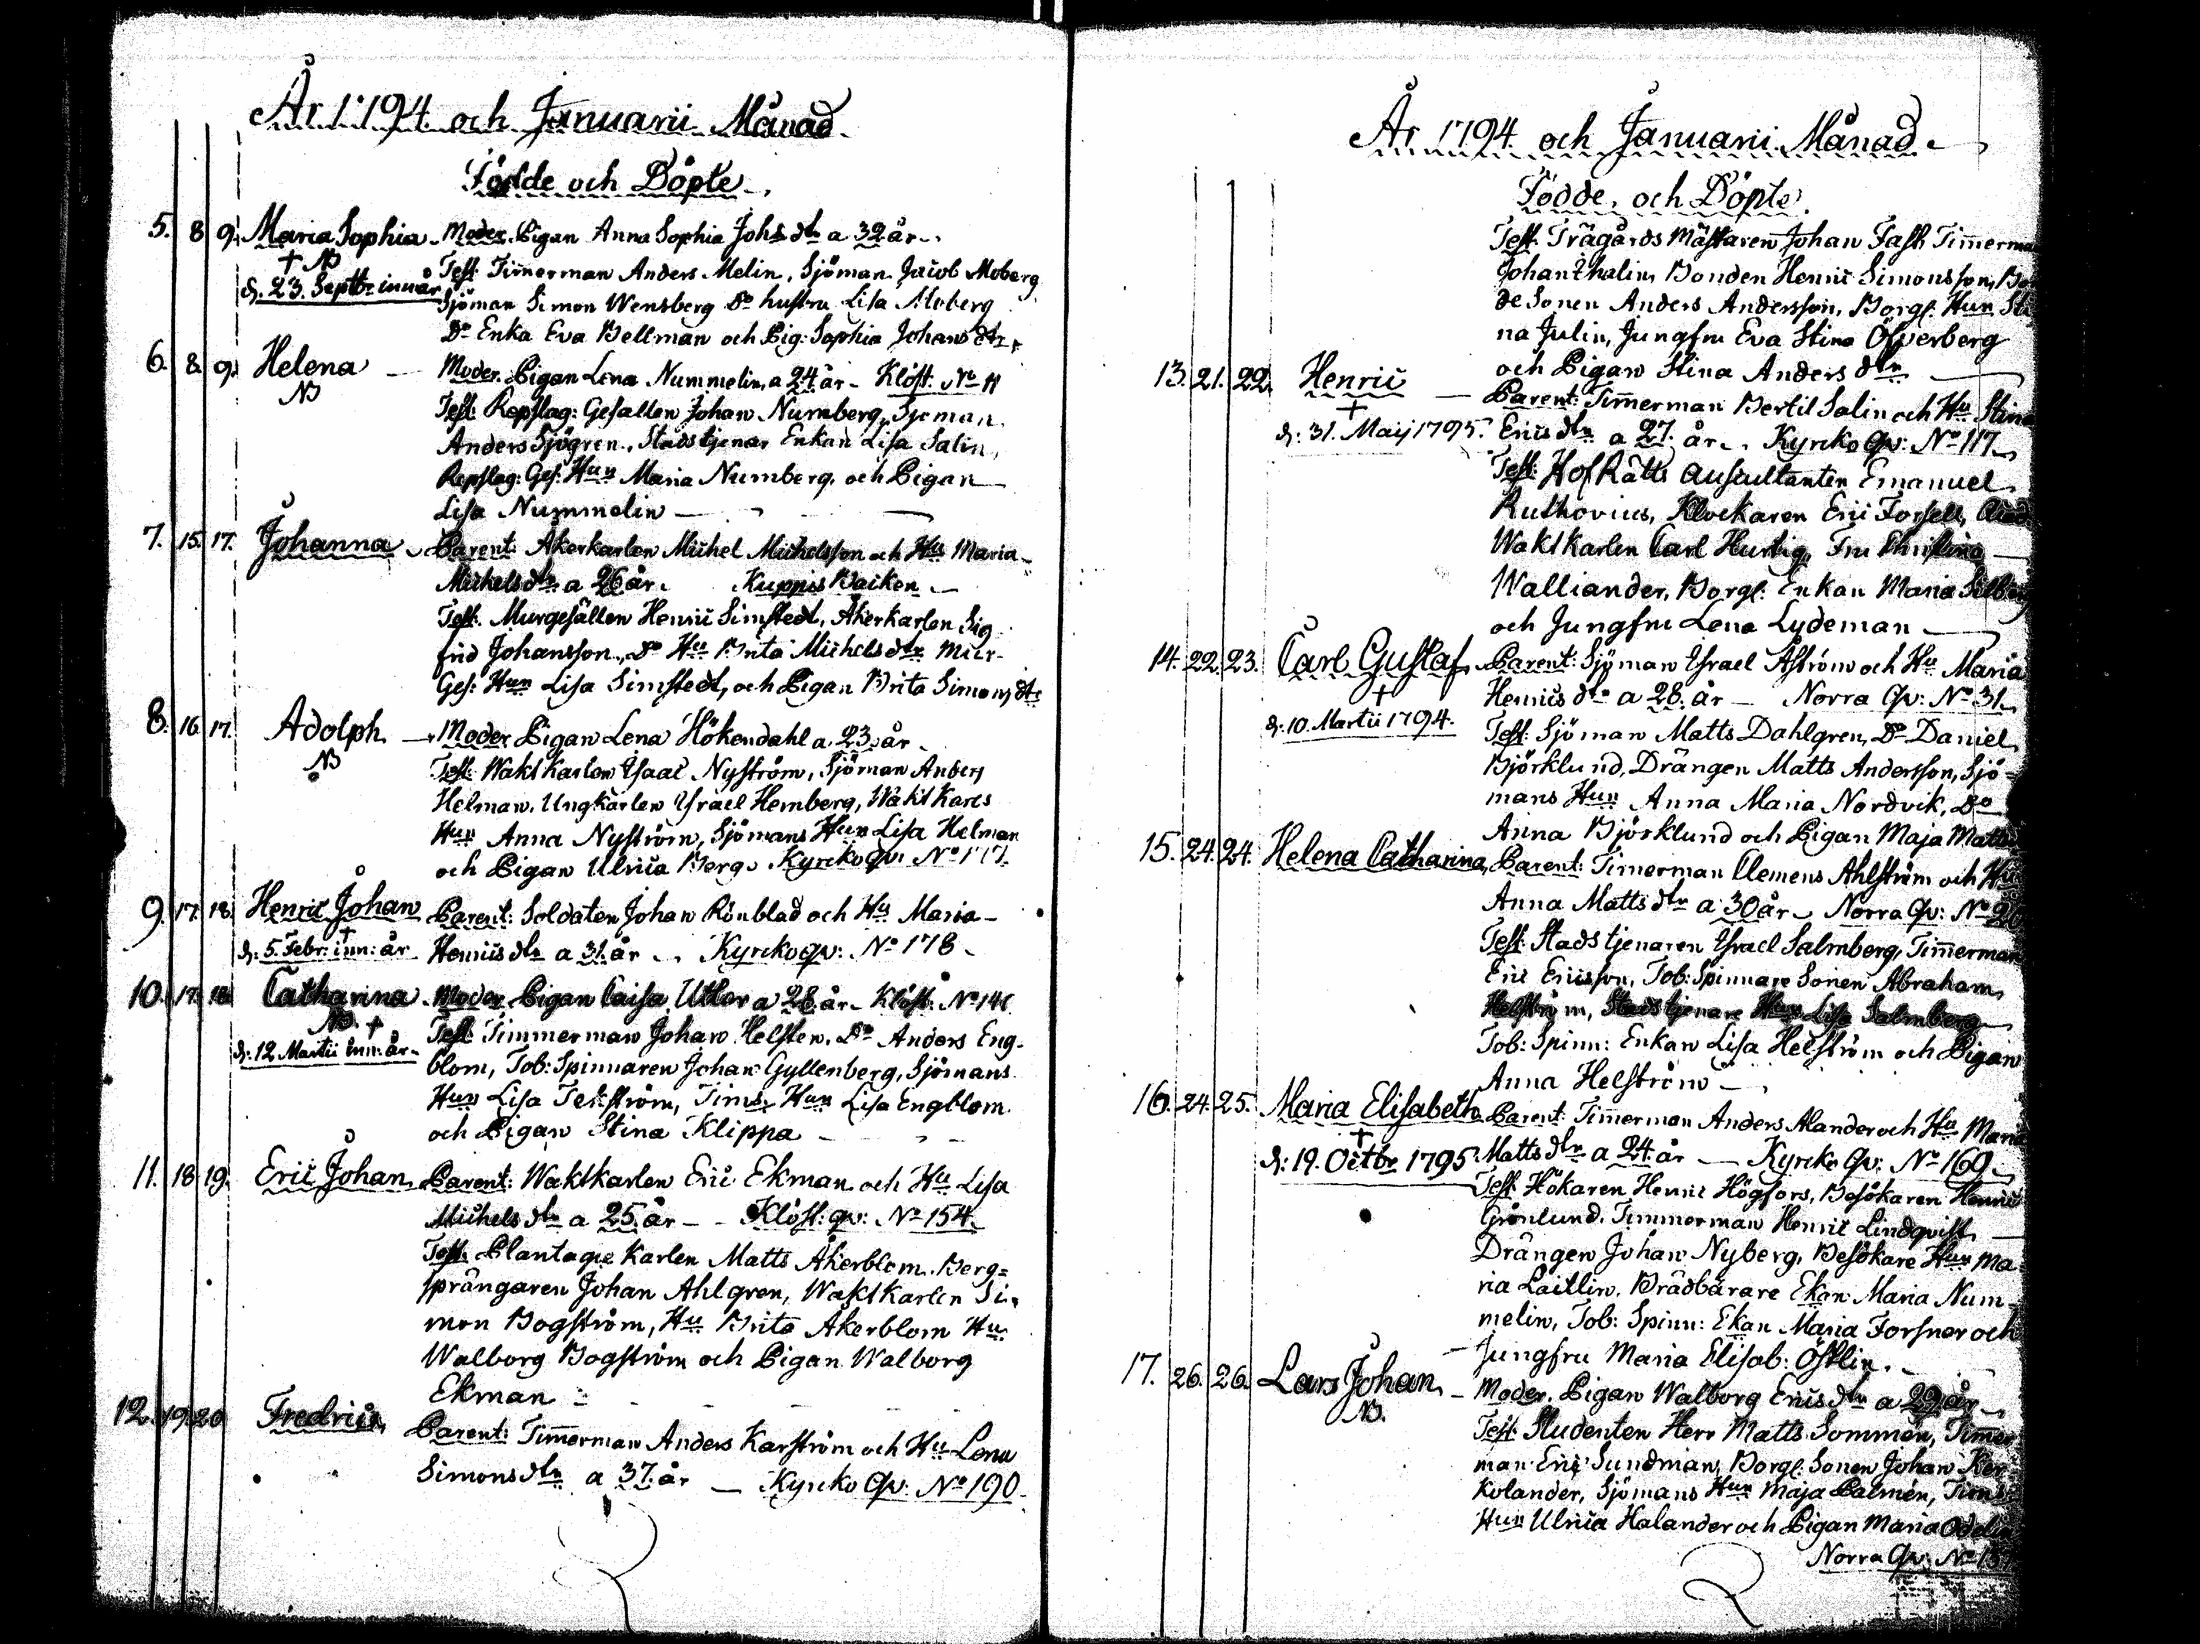 År 1794. och Januarii Månad.
Födde och Döpte.
5. 8 9. Maria Sophia. Moder. Pigan Anna Sophia Johs dtr a 32 år.
† NB Test: Tim̅erman Anders Melin, Sjöman Jacob Moberg
d. 23. Septbr innev: år Sjöman Simon Wensberg Do hustru Lisa Moberg
Do Enka Eva Bellman och Pig: Sophia Johans dtr.
6. 8. 9. Helena Moder. Pigan Lena Nummelin, a 24 år - Klöst. No 11
NB Test: Repslag: Gesällen Johan Nurmberg, Sjöman
Anders Sjögren, Stadstjenar Enkan Lisa Salin,
Repslag: Ges: Hun Maria Nurmberg, och Pigan
Lisa Nummelin
7. 15. 17. Johanna Parent: Åkerkarlen Michel Michelsson och Hu Maria
Michels dtr a 26 år. Kuppis Backen.
Test. Murgesällen Henric Simstedt, Åkerkarlen Sig-
frid Johansson, Do Hu Brita Michels dtr Mur-
Ges: Hun Lisa Simstedt, och Pigan Brita Simons dtr
8. 16. 17. Adolph Moder Pigan Lena Hökendahl a 23 år
NB Test: Waktkarlen Isaac Nyström, Sjöman Anders
Helman, Ungkarlen Israel Hemberg, Wakt Karls
Hun Anna Nyström, Sjömans Hun Lisa Helman
och Pigan Ulrica Berg. Kyrcko qv: No 177.
9. 17. 18. Henric Johan Parent: Soldaten Johan Rönblad och Hu Maria
† d: 5. Febr: inn: år Henrics dtr a 31. år. Kyrcko qv: No 178.
10. 17. 18. Catharina Moder Pigan Caisa Utter a 28 år - Klöst: No 141.
NB. † Test: Timmerman Johan Helsten, Do Anders Eng-
d: 12 Martii inn: år blom, Tob: Spinnaren Johan Gyllenberg, Sjömans
Hun Lisa Terström, Tims Hun Lisa Engblom
och Pigan Stina Klippa
11. 18 19. Eric Johan. Parent: Waktkarlen Eric Ekman och Hu Lisa
Michels dtr a 25. år - Klöst: qv: No 154.
Test. Plantagie Karlen Matts Åkerblom. Berg=
sprängaren Johan Ahlgren, Waktkarlen Si-
mon Bogström, Hu Brita Åkerblom Hu
Walborg Bogström och Pigan Walborg
Ekman
12. 19. 20 Fredric Parent: Tim̅erman Anders Karström och Hu Lena
Simons dtr a 37. år - Kyrcko Qv: No 190.
År 1794. och Januarii Månad.
Födde, och Döpte.
Test. Trägårds Mästaren Johan Fast Tim̅erma
Johan Thalin, Bonden Henric Simonsson, Bo
de Sonen Anders Andersson, Borgl: Hun Sti
na Julin, Jungfru Eva Stina Öfverberg
och Pigan Stina Anders dtr
13. 21. 22. Henric Parent: Tim̅erman Bertil Salin och Hu Stina
† d: 31. Maij 1795. Erics dtr a 27. år. Kyrcko Qv: No 117.
Test: Hof Rätts Auscultanten Emanuel
Ruthovius, Klockaren Eric Forsell,
Waktkarlen Carl Hurtig, Fru Christina
Walliander, Borgl: Enkan Maria
och Jungfru Lena Lydeman
14. 22. 23. Carl Gustaf Parent: Sjöman Israel Åström och Hu Maria
† Henrics dtr a 28. år - Norra Qv: No 31.
d: 10. Martii 1794. Test: Sjöman Matts Dahlgren, Do Daniel
Björklund, Drängen Matts Andersson, Sjö=
mans Hun Anna Maria Nordvik, Do
Anna Björklund och Pigan Maja Matts
15. 24. 24. Helena Catharina Parent: Tim̅erman Clemens Ahlström och Hu
Anna Matts dtr a 30 år Norra Qv: No
Test: Stads tjenaren Israel Salmberg, Tim̅erman
Eric Ericsson, Tob: Spinnare Sonen Abraham
Helström, Stads tjenare Hun Lisa Salmberg
Tob: Spinn: Enkan Lisa Helström och Pigan
Anna Helström
16. 24. 25. Maria Elisabeth Parent: Tim̅erman Anders Alander och Hu Maria
† d: 19. Octbr 1795. Matts dtr a 24. år - Kyrcko Qv: No 169
Test: Hökaren Henric Högfors, Besökaren Henric
Grönlund. Timmerman Henric Lindqvist
Drängen Johan Nyberg, Besökare Hun Ma
ria Laitlin, Brädbärare Ekan Maria Num-
melin, Tob: Spinn: Ekan Maria Forsner och
Jungfru Maria Elisab: Östlin.
17. 26. 26. Lars Johan Moder. Pigan Walborg Erics dtr a 29 år
NB. Test: Studenten Herr Matts Sommén, Tim̅er
man Eric Sundman, Borgl: Sonen Johan
Kolander, Sjömans Hun Maja Palmén, Tims
Hun Ulrica Halander och Pigan Maria
Norra Qv: No